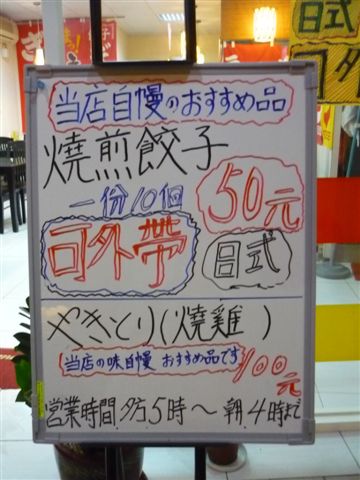 当店自慢のおすすめ品
燒煎餃子
一份10個
50元
可外帶
日式
やきとり(燒雞 )
当店の味自慢 おすすめ品です
100元
営業時間.夕方5時～朝.4時まで
日式